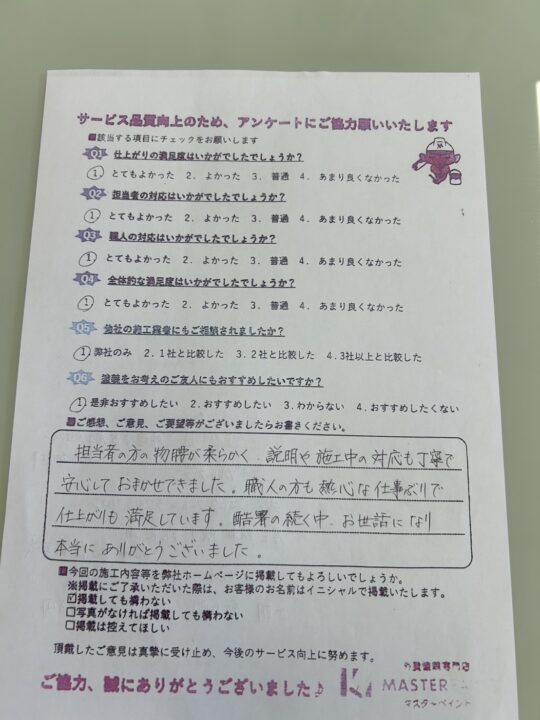 サービス品質向上のため、アンケートにご協力願いいたします
■該当する項目にチェックをお願いします
Q1 仕上がりの満足度はいかがでしたでしょうか?
① とてもよかった 2. よかった 3. 普通 4. あまり良くなかった
Q2 担当者の対応はいかがでしたでしょうか?
① とてもよかった 2. よかった 3. 普通 4. あまり良くなかった
Q3 職人の対応はいかがでしたでしょうか?
① とてもよかった 2. よかった 3. 普通 4. あまり良くなかった
Q4 全体的な満足度はいかがでしたでしょうか?
① とてもよかった 2. よかった 3. 普通 4. あまり良くなかった
Q5 他社の施工業者にもご相談されましたか?
① 弊社のみ 2.1社と比較した 3.2社と比較した 4.3社以上と比較した
Q6 塗装をお考えのご友人にもおすすめしたいですか?
① 是非おすすめしたい 2.おすすめしたい 3.わからない 4.おすすめしたくない
■ご感想、ご意見、ご要望等がございましたらお書きください。
担当者の方の物腰が柔らかく、説明や施工中の対応も丁寧で
安心しておまかせできました。職人の方も熱心な仕事ぶりで
仕上がりも満足しています。酷暑の続く中、お世話になり
本当にありがとうございました。
■今回の施工内容等を弊社ホームページに掲載してもよろしいでしょうか。
※掲載にご了承いただいた際は、お客様のお名前はイニシャルで掲載いたします。
☑掲載しても構わない
□写真がなければ掲載しても構わない
□掲載は控えてほしい
頂戴したご意見は真摯に受け止め、今後のサービス向上に努めます。
ご協力、誠にありがとうございました♪
外壁塗装専門店
MASTER
マスターペイント